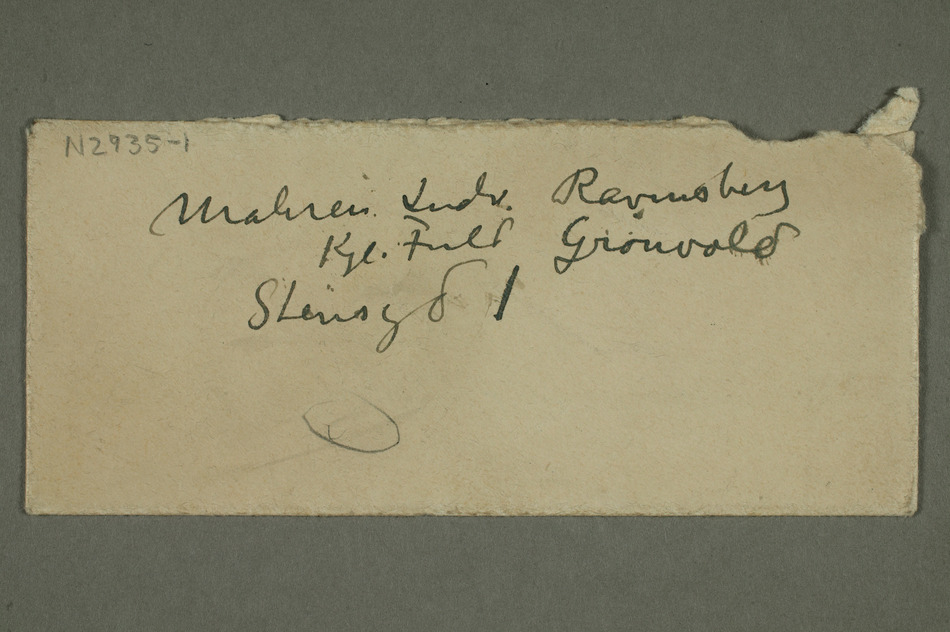 N2935-1
Maleren Ludv. Ravensberg
Kgl. Fuld Grönvold
Stensgd 1